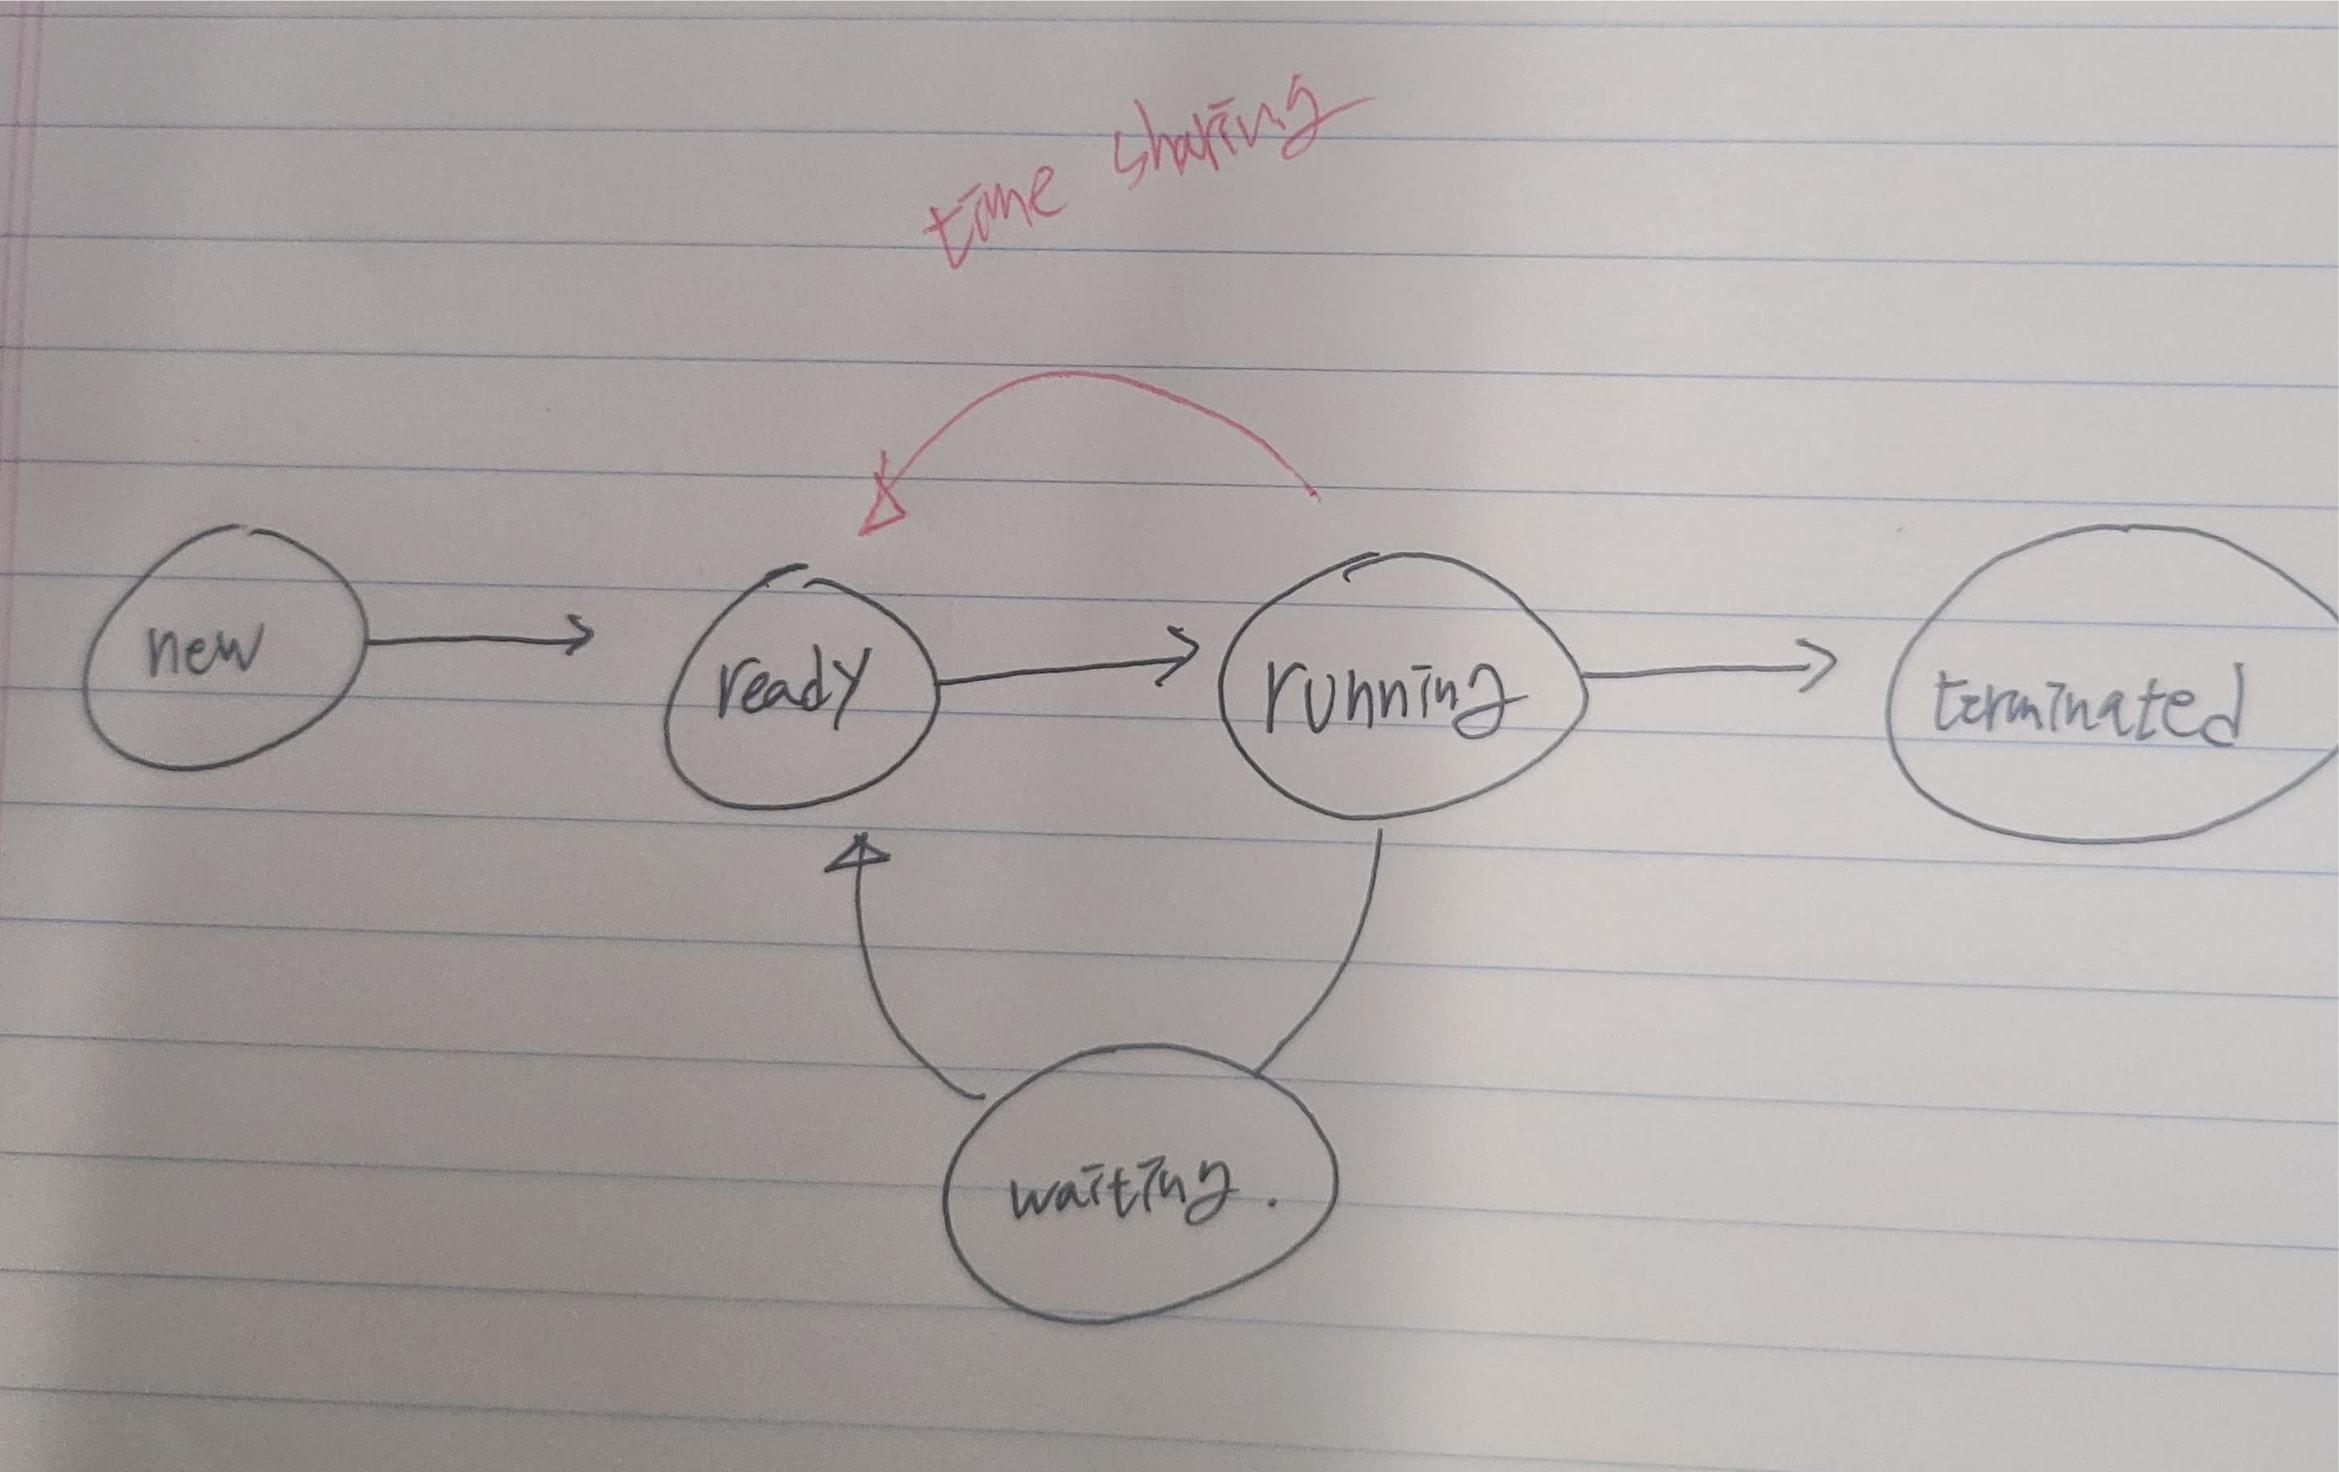 time sharing
new
ready
running
terminated
waiting.